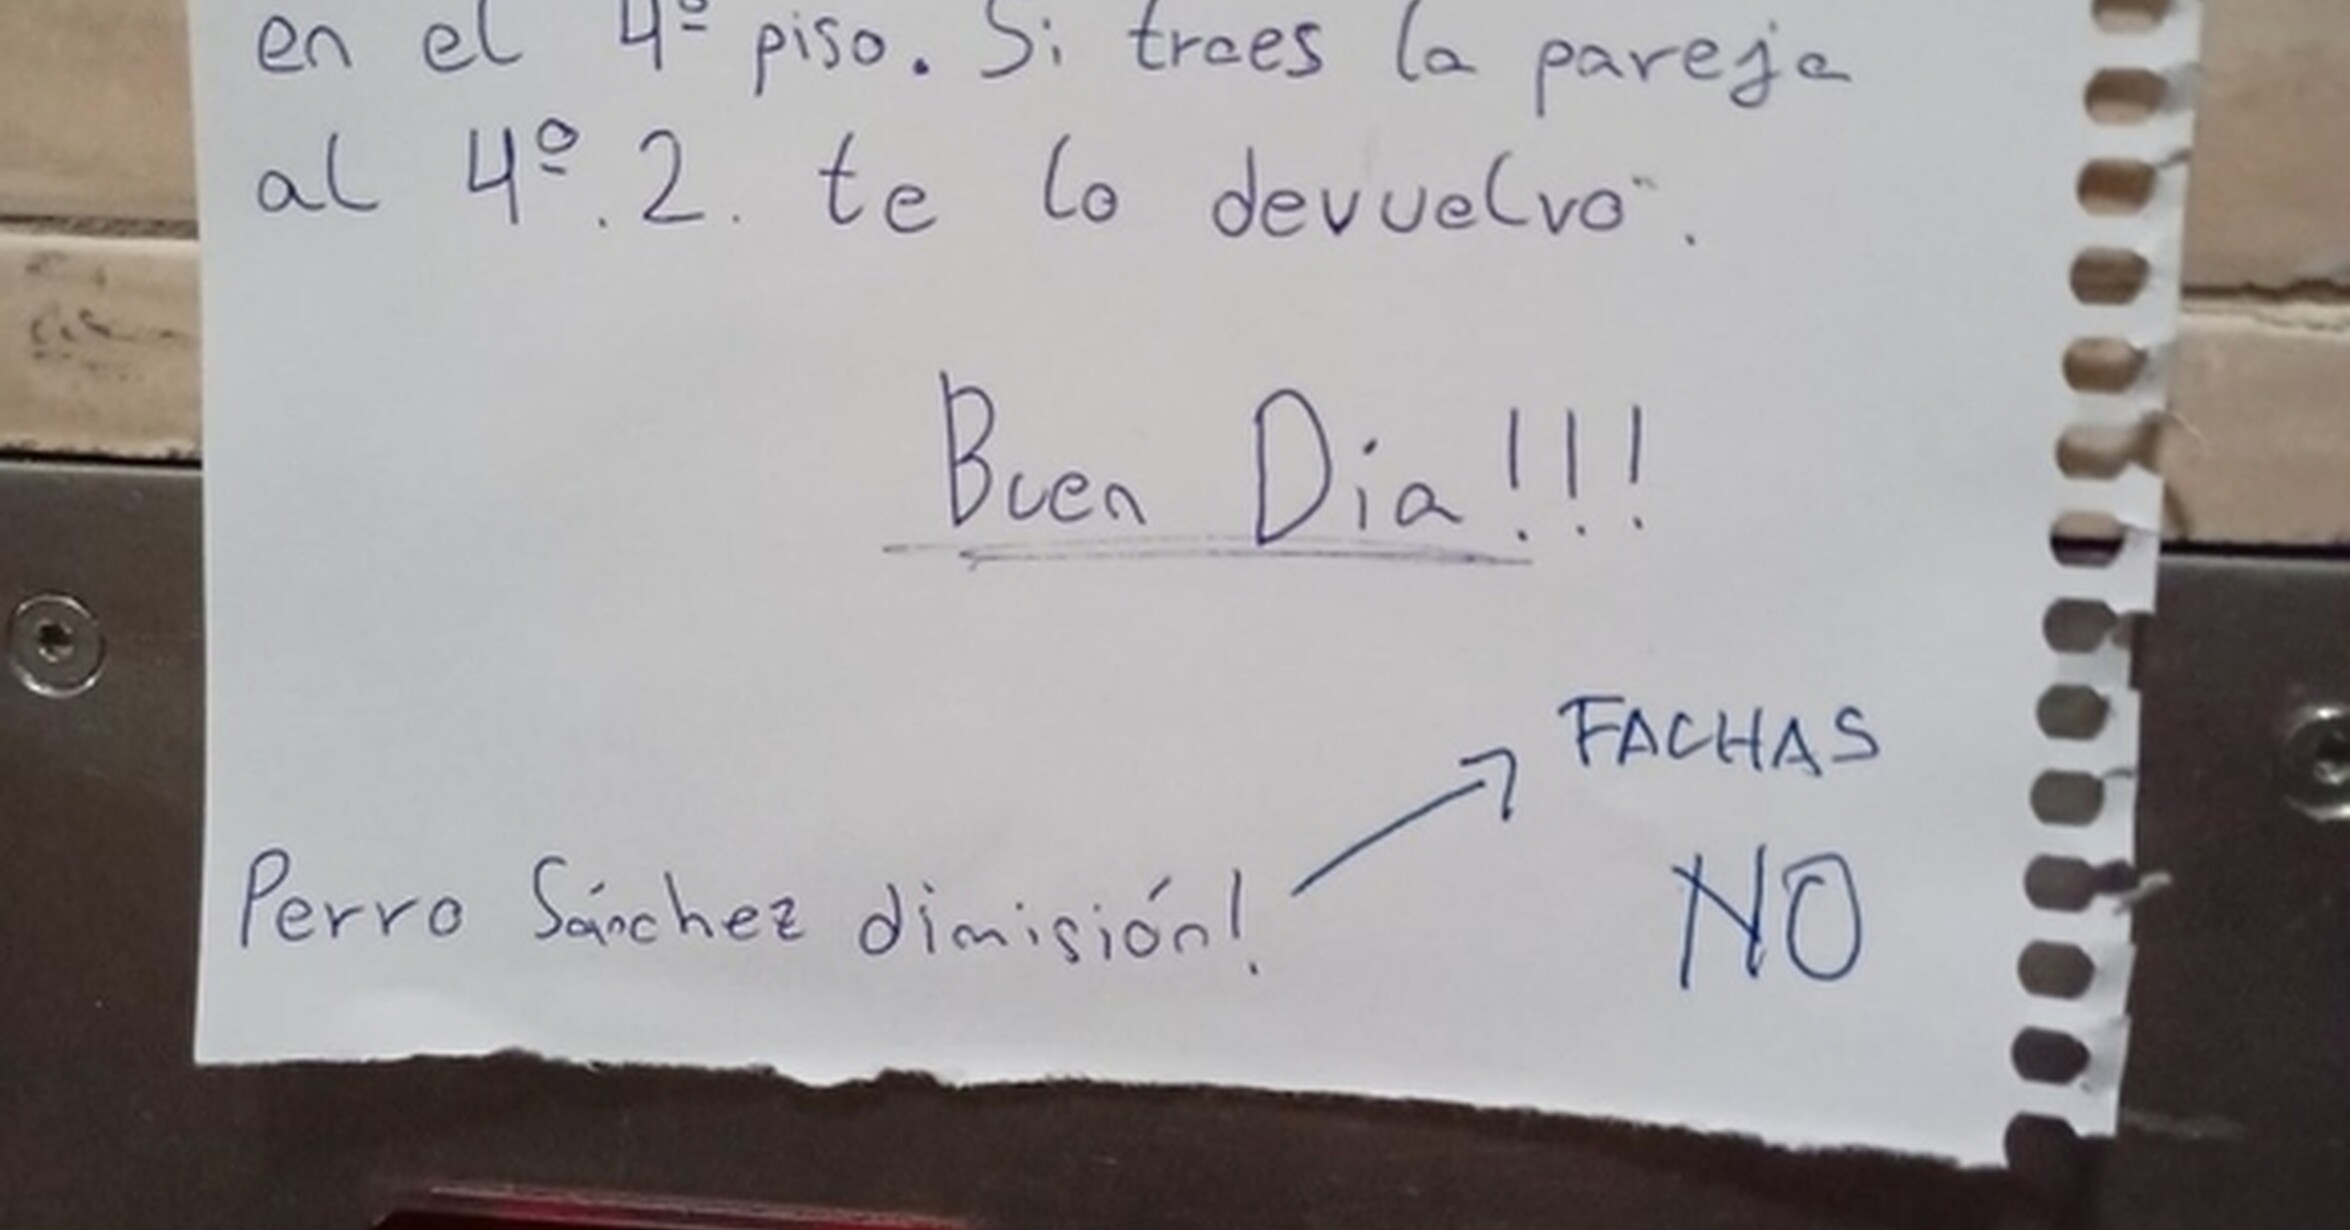 en el 4º piso. Si traes la pareja
al 4º.2. te lo devuelvo.
Buen Dia!!!
FACHAS
NO
Perro Sánchez dimisión!